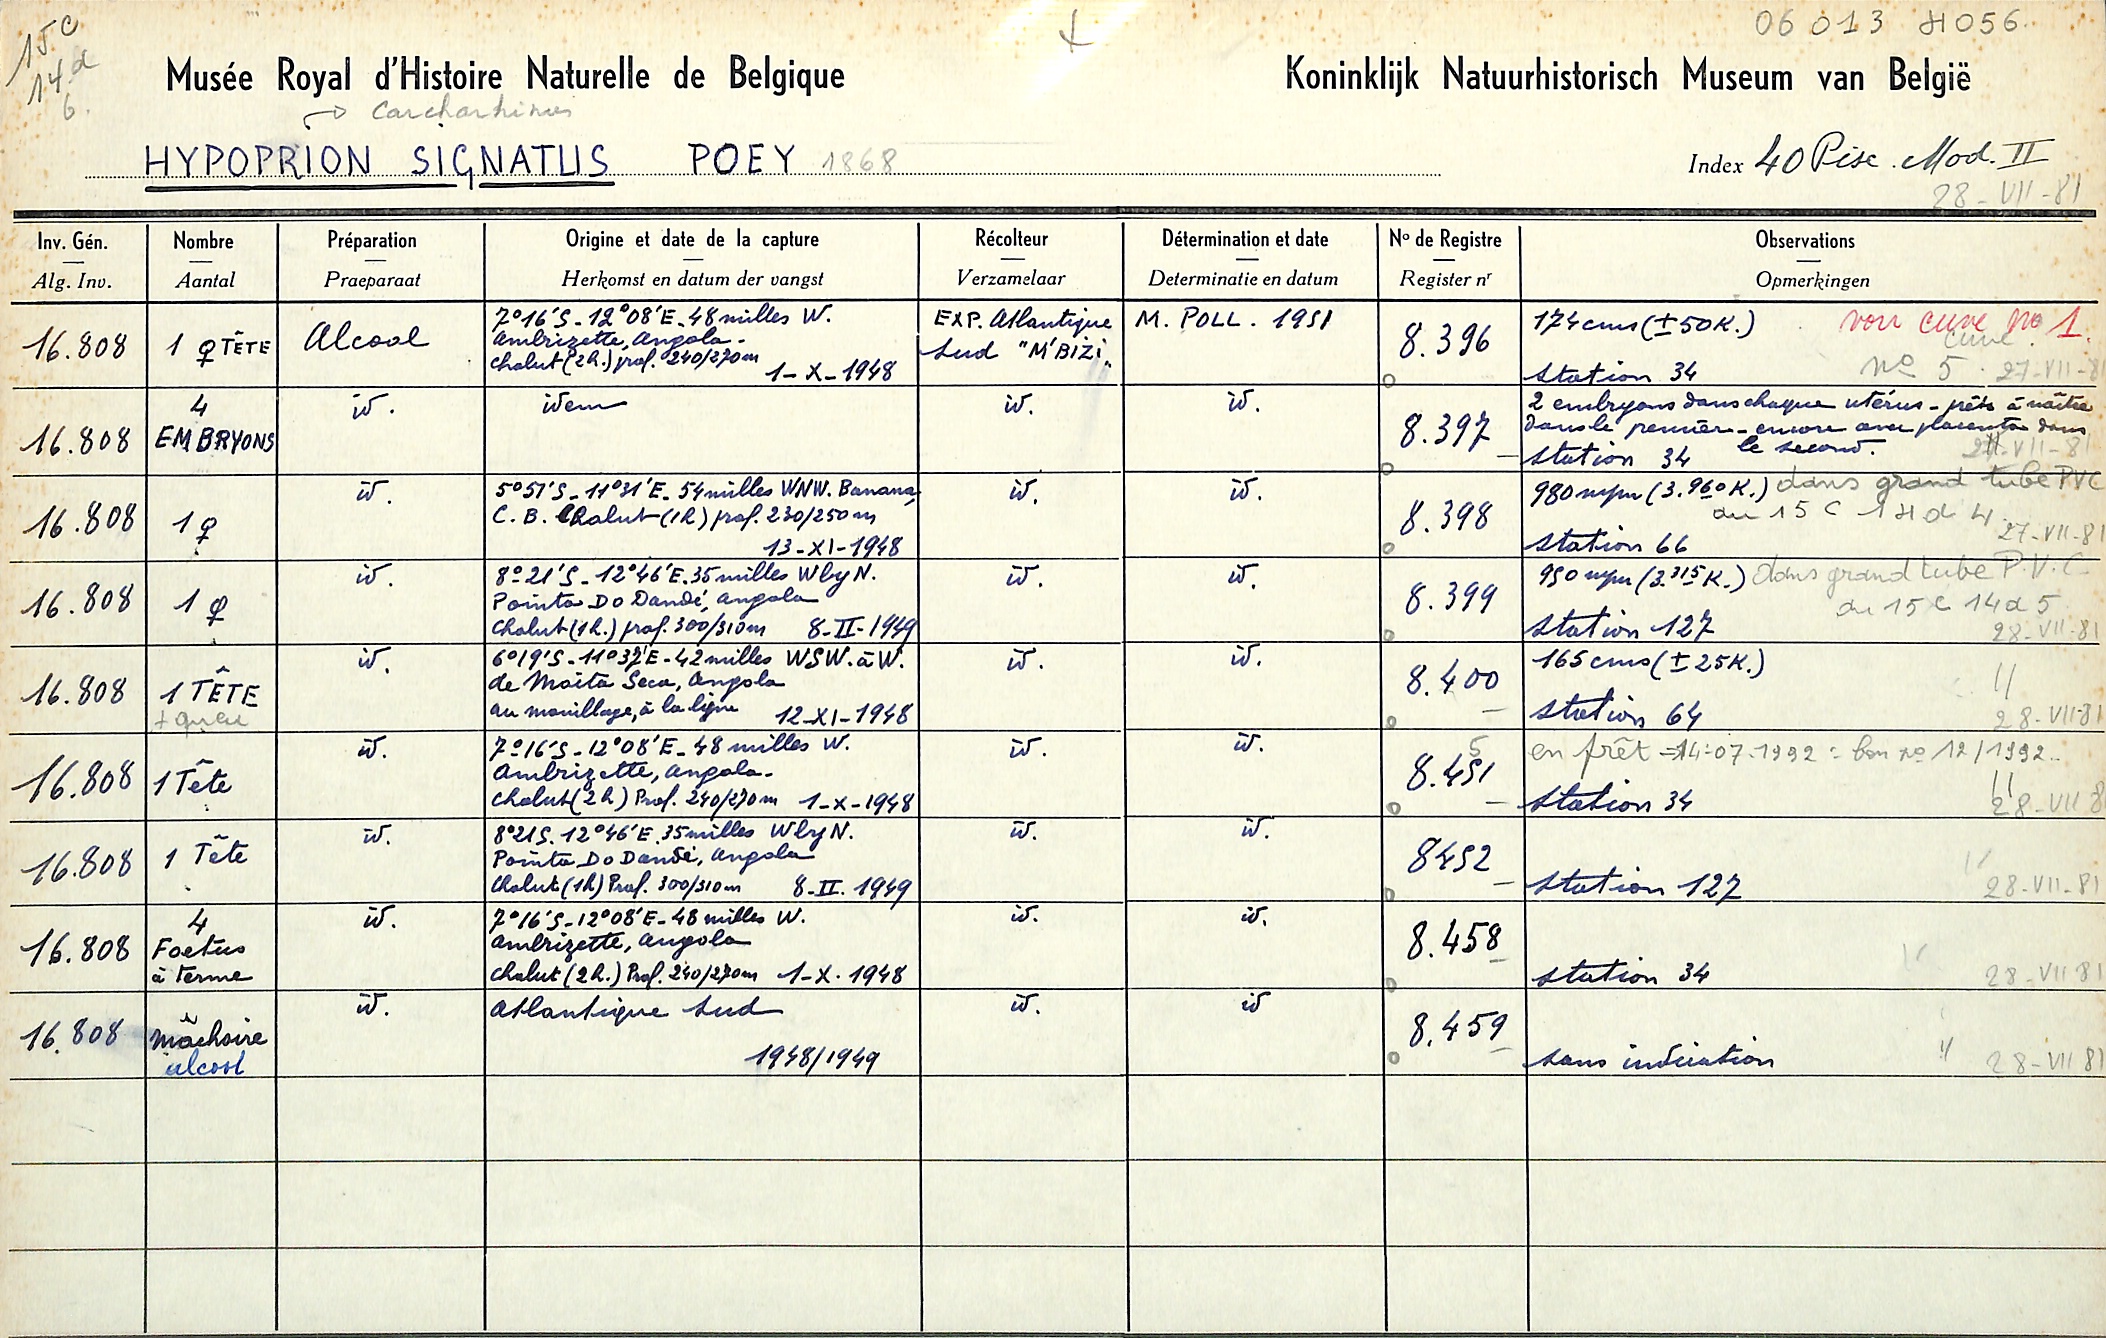 15 C
14 d
6.
06 013 H056
Musée Royal d'Histoire Naturelle de Belgique
Koninklijk Natuurhistorisch Museum van België
→ Carcharhinus
HYPOPRION SIGNATUS POEY 1868
Index 40 Pisc. Mod. II
28-VII-81
Inv. Gén. Nombre Préparation Origine et date de la capture Récolteur Détermination et date No de Registre Observations
Alg. Inv. Aantal Praeparaat Herkomst en datum der vangst Verzamelaar Determinatie en datum Register nr Opmerkingen
16.808
1 ♀ TÊTE
Alcool
7°16'S-12°08'E-48 milles W.
Ambrizette, Angola-
Chalut (2h.) prof. 240/270m
1-X-1948
EXP. Atlantique
Sud "M'BIZI"
M. POLL. 1951
8.396
174 cms (± 50K.)
voir cuve no 1.
cuve
No 5. 27-VII-81
Station 34
16.808
4
EMBRYONS
id.
idem
id.
id.
8.397
2 embryons dans chaque utérus - prêts à naître
dans le premier - encore avec placenta dans
le second.
Station 34
27-VII-81
16.808
1 ♀
id.
5°57'S-11°31'E-54 milles WNW. Banana,
C. B. Chalut (1h) prof. 230/250m
13-XI-1948
id.
id.
8.398
980 mm (3.960K.) dans grand tube PVC
du 15 C 14 d 4
27-VII-81
Station 66
16.808
1 ♀
id.
8°21'S-12°46'E.35 milles WbyN.
Pointa Do Dandé, Angola
Chalut (1h.) prof. 300/310m 8-II-1949
id.
id.
8.399
950 mm (3.315K.) dans grand tube P.V.C.
du 15 C 14 d 5
28-VII-81
Station 127
16.808
1 TÊTE
+ queue
id.
6°19'S-11°37'E-42 milles WSW. à W.
de Moita Seca, Angola
au mouillage, à la ligne 12-XI-1948
id.
id.
8.400
165 cms (± 25K.)
"
28-VII-81
Station 64
16.808
1 Tête
id.
7°16'S-12°08'E-48 milles W.
Ambrizette, Angola-
Chalut (2h) Prof. 240/270m 1-X-1948
id.
id.
5
8.451
en prêt = 14-07-1992 = bon no 12/1992
"
28-VII 8
Station 34
16.808
1 Tête
id.
8°21S. 12°46'E.35 milles WbyN.
Pointa Do Dandé, Angola
Chalut (1h) Prof. 300/310m 8-II.1949
id.
id.
8452
"
28-VII-81
Station 127
16.808
4
Foetus
à terme
id.
7°16'S-12°08'E-48 milles W.
Ambrizette, Angola
Chalut (2h.) Prof. 240/270m 1-X.1948
id.
id.
8.458
"
28-VII 81
Station 34
16.808
Mâchoire
alcool
id.
Atlantique Sud
1948/1949
id.
id
8.459
"
28-VII 81
Sans indication